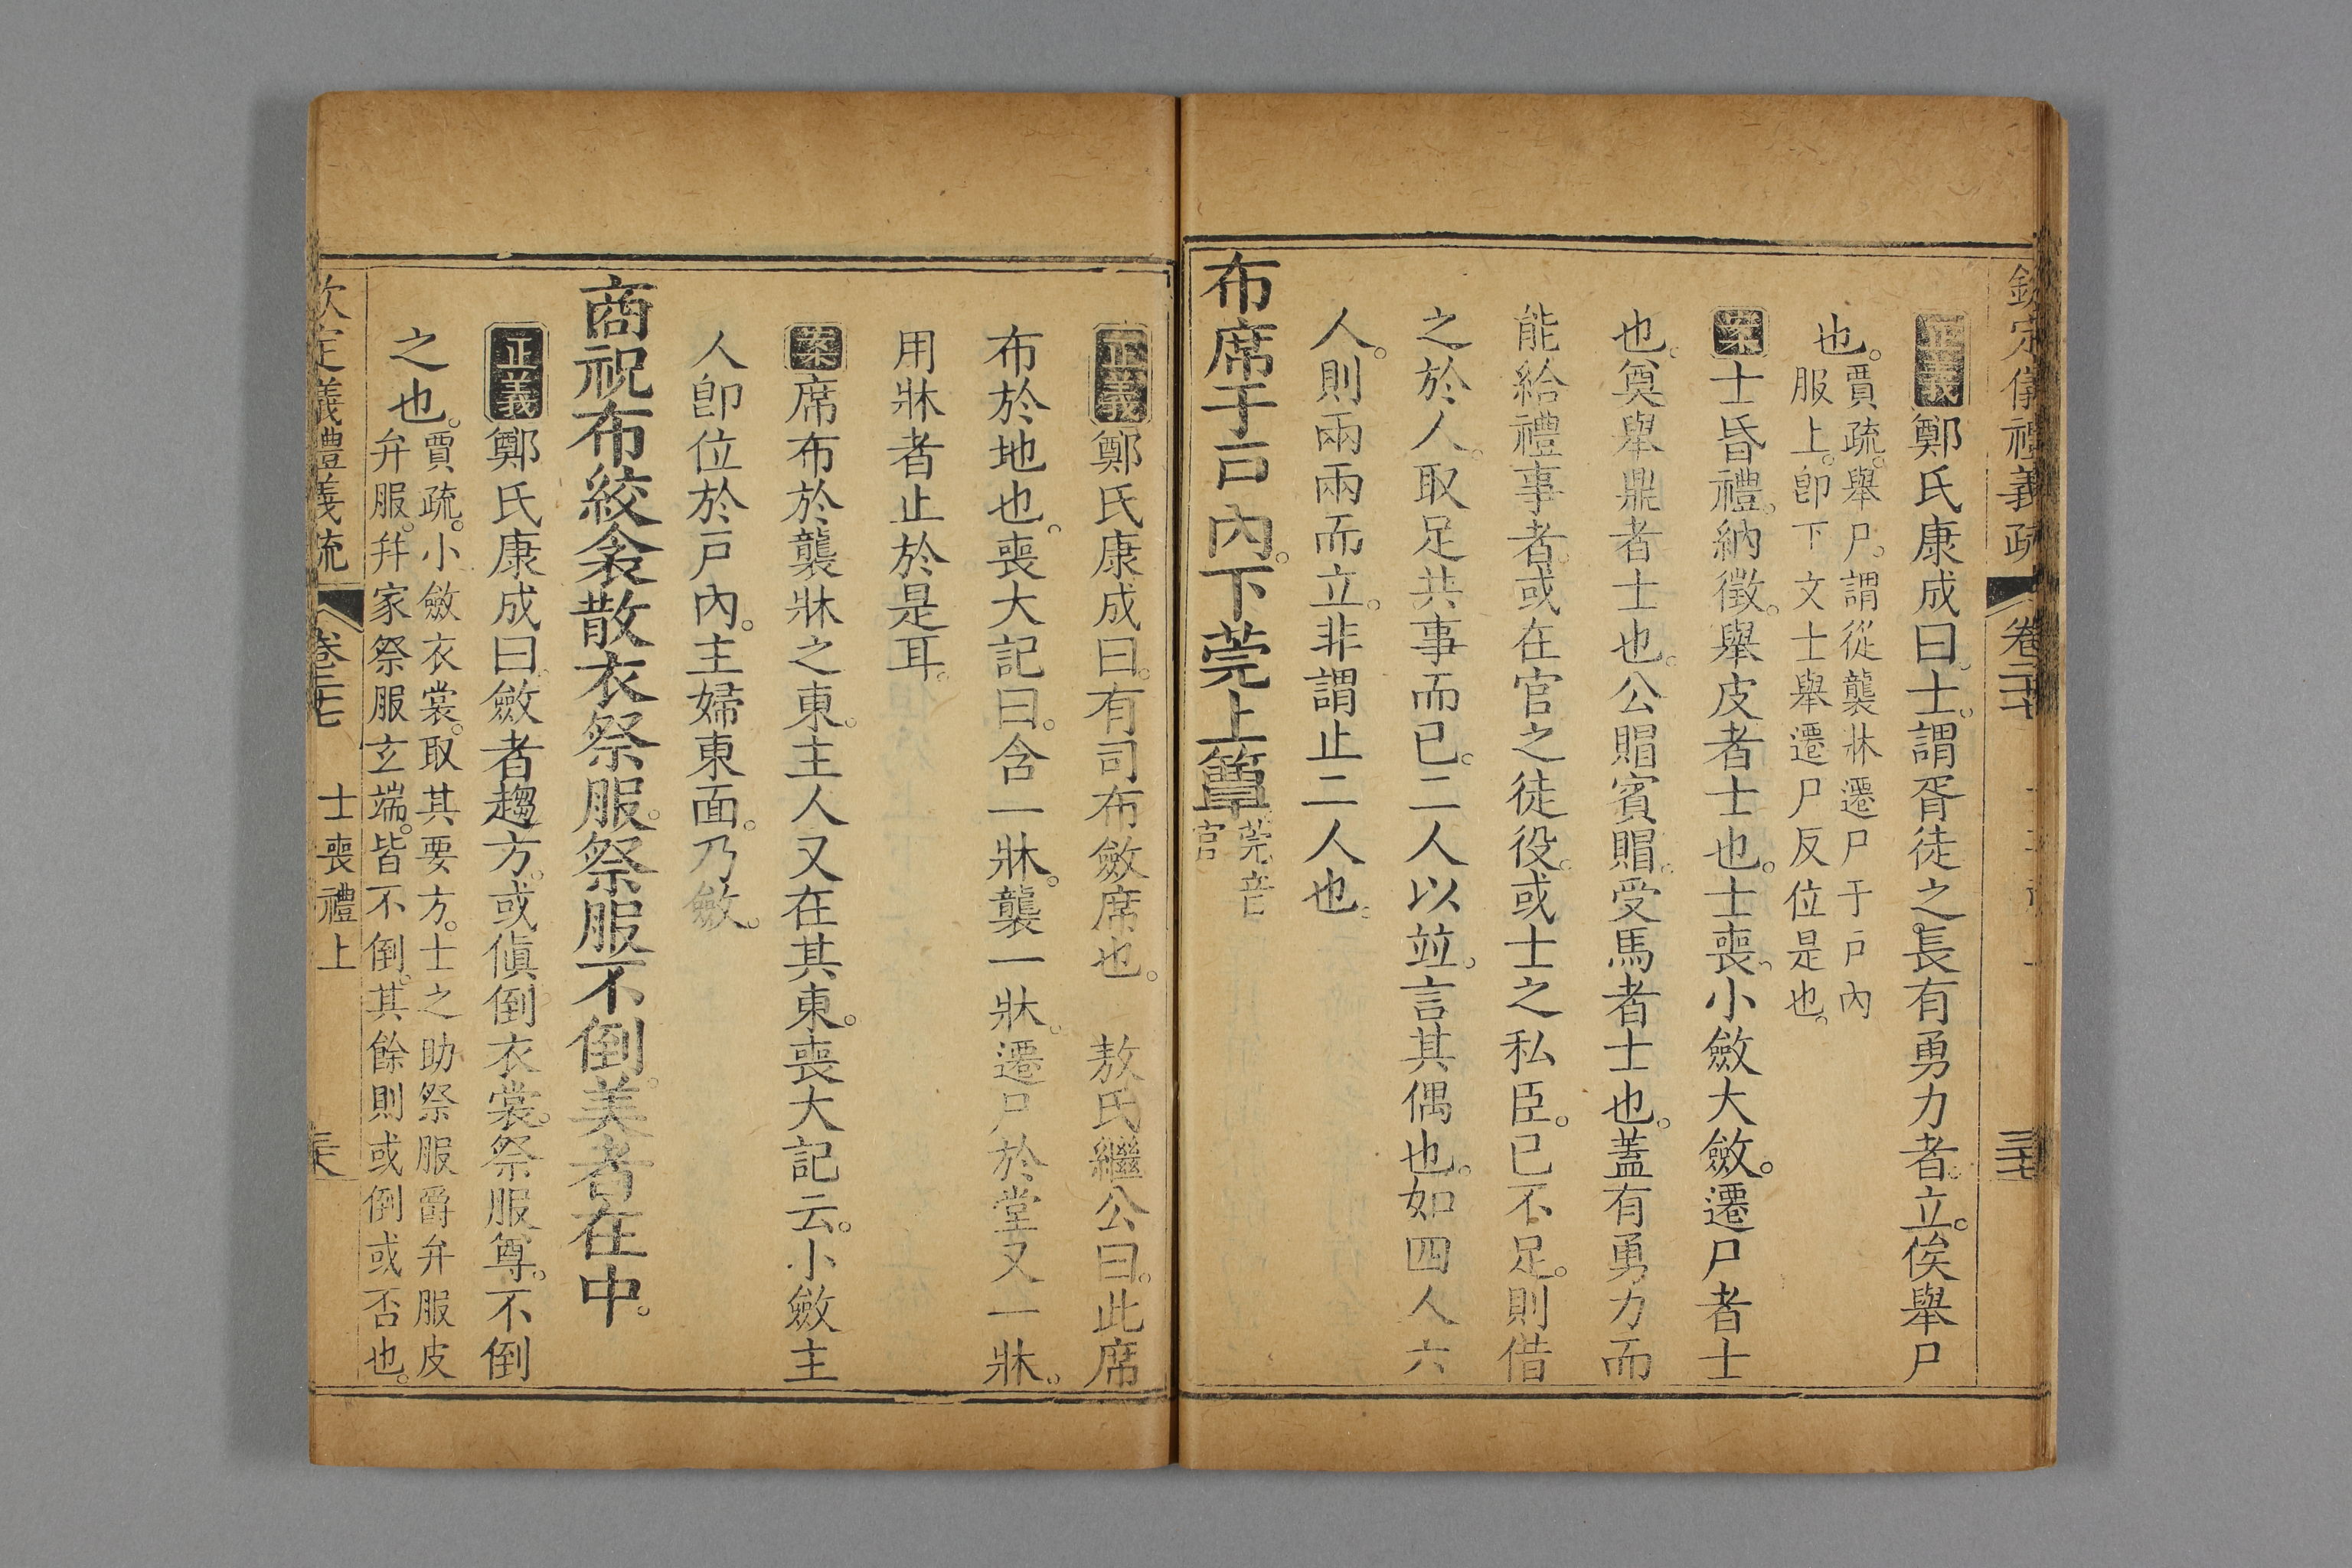 欽定儀禮義疏 卷二十七 三十七
正義鄭氏康成曰。士。謂胥徒之長有勇力者。立。俟舉尸
也。賈疏。舉尸。謂從襲牀遷尸于戶內
服上。卽下文士舉遷尸反位是也。
案士昏禮。納徵。舉皮者士也。士喪。小斂大斂。遷尸者士
也。奠舉鼎者士也。公賵賓賵。受馬者士也。蓋有勇力而
能給禮事者。或在官之徒役。或士之私臣。已不足。則借
之於人。取足共事而已。二人以竝。言其偶也。如四人六
人。則兩兩而立。非謂止二人也。
布席于戶內。下莞上簟。莞。音
官。
正義鄭氏康成曰。有司布斂席也。 敖氏繼公曰。此席
布於地也。喪大記曰。含一牀。襲一牀。遷尸於堂又一牀。
用牀者止於是耳。
案席布於襲牀之東。主人又在其東。喪大記云。小斂主
人卽位於戶內。主婦東面。乃斂。
商祝布絞衾散衣祭服。祭服不倒。美者在中。
正義鄭氏康成曰。斂者趨方。或傎倒衣裳。祭服尊。不倒
之也。賈疏。小斂衣裳。取其要方。士之助祭服爵弁服皮
弁服。幷家祭服玄端。皆不倒。其餘則或倒或否也。
欽定義禮義疏 卷二十七 士喪禮上